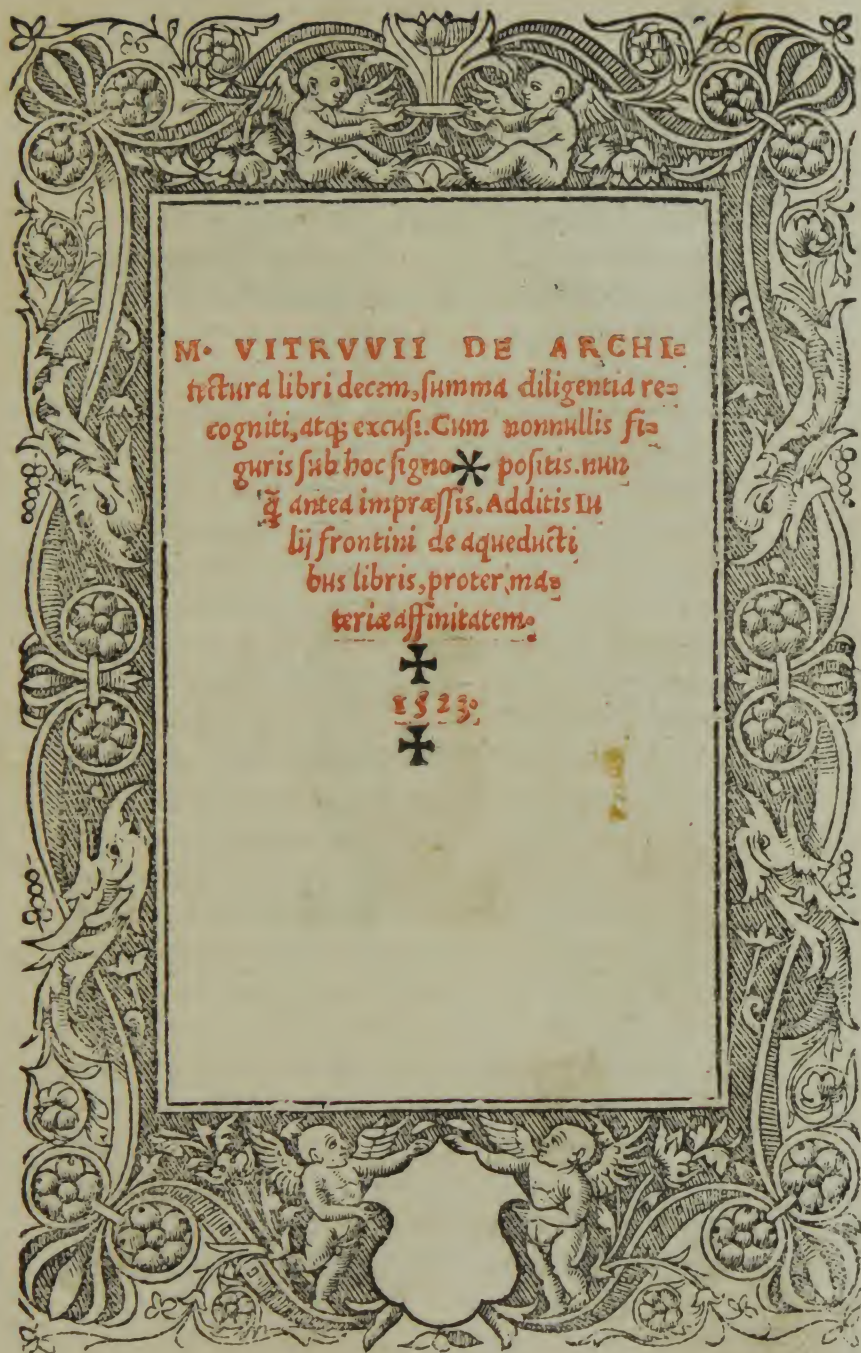 M. VITRVVII DE ARCHI=
tectura libri decem, summa diligentia re=
cogniti, atq; excusi. Cum nonnullis fi=
guris sub hoc signo * positis. nun
q̃ antea impræssis. Additis Iu
lij frontini de aqueducti
bus libris, proter, ma=
teriæ affinitatem.
✠
1523.
✠